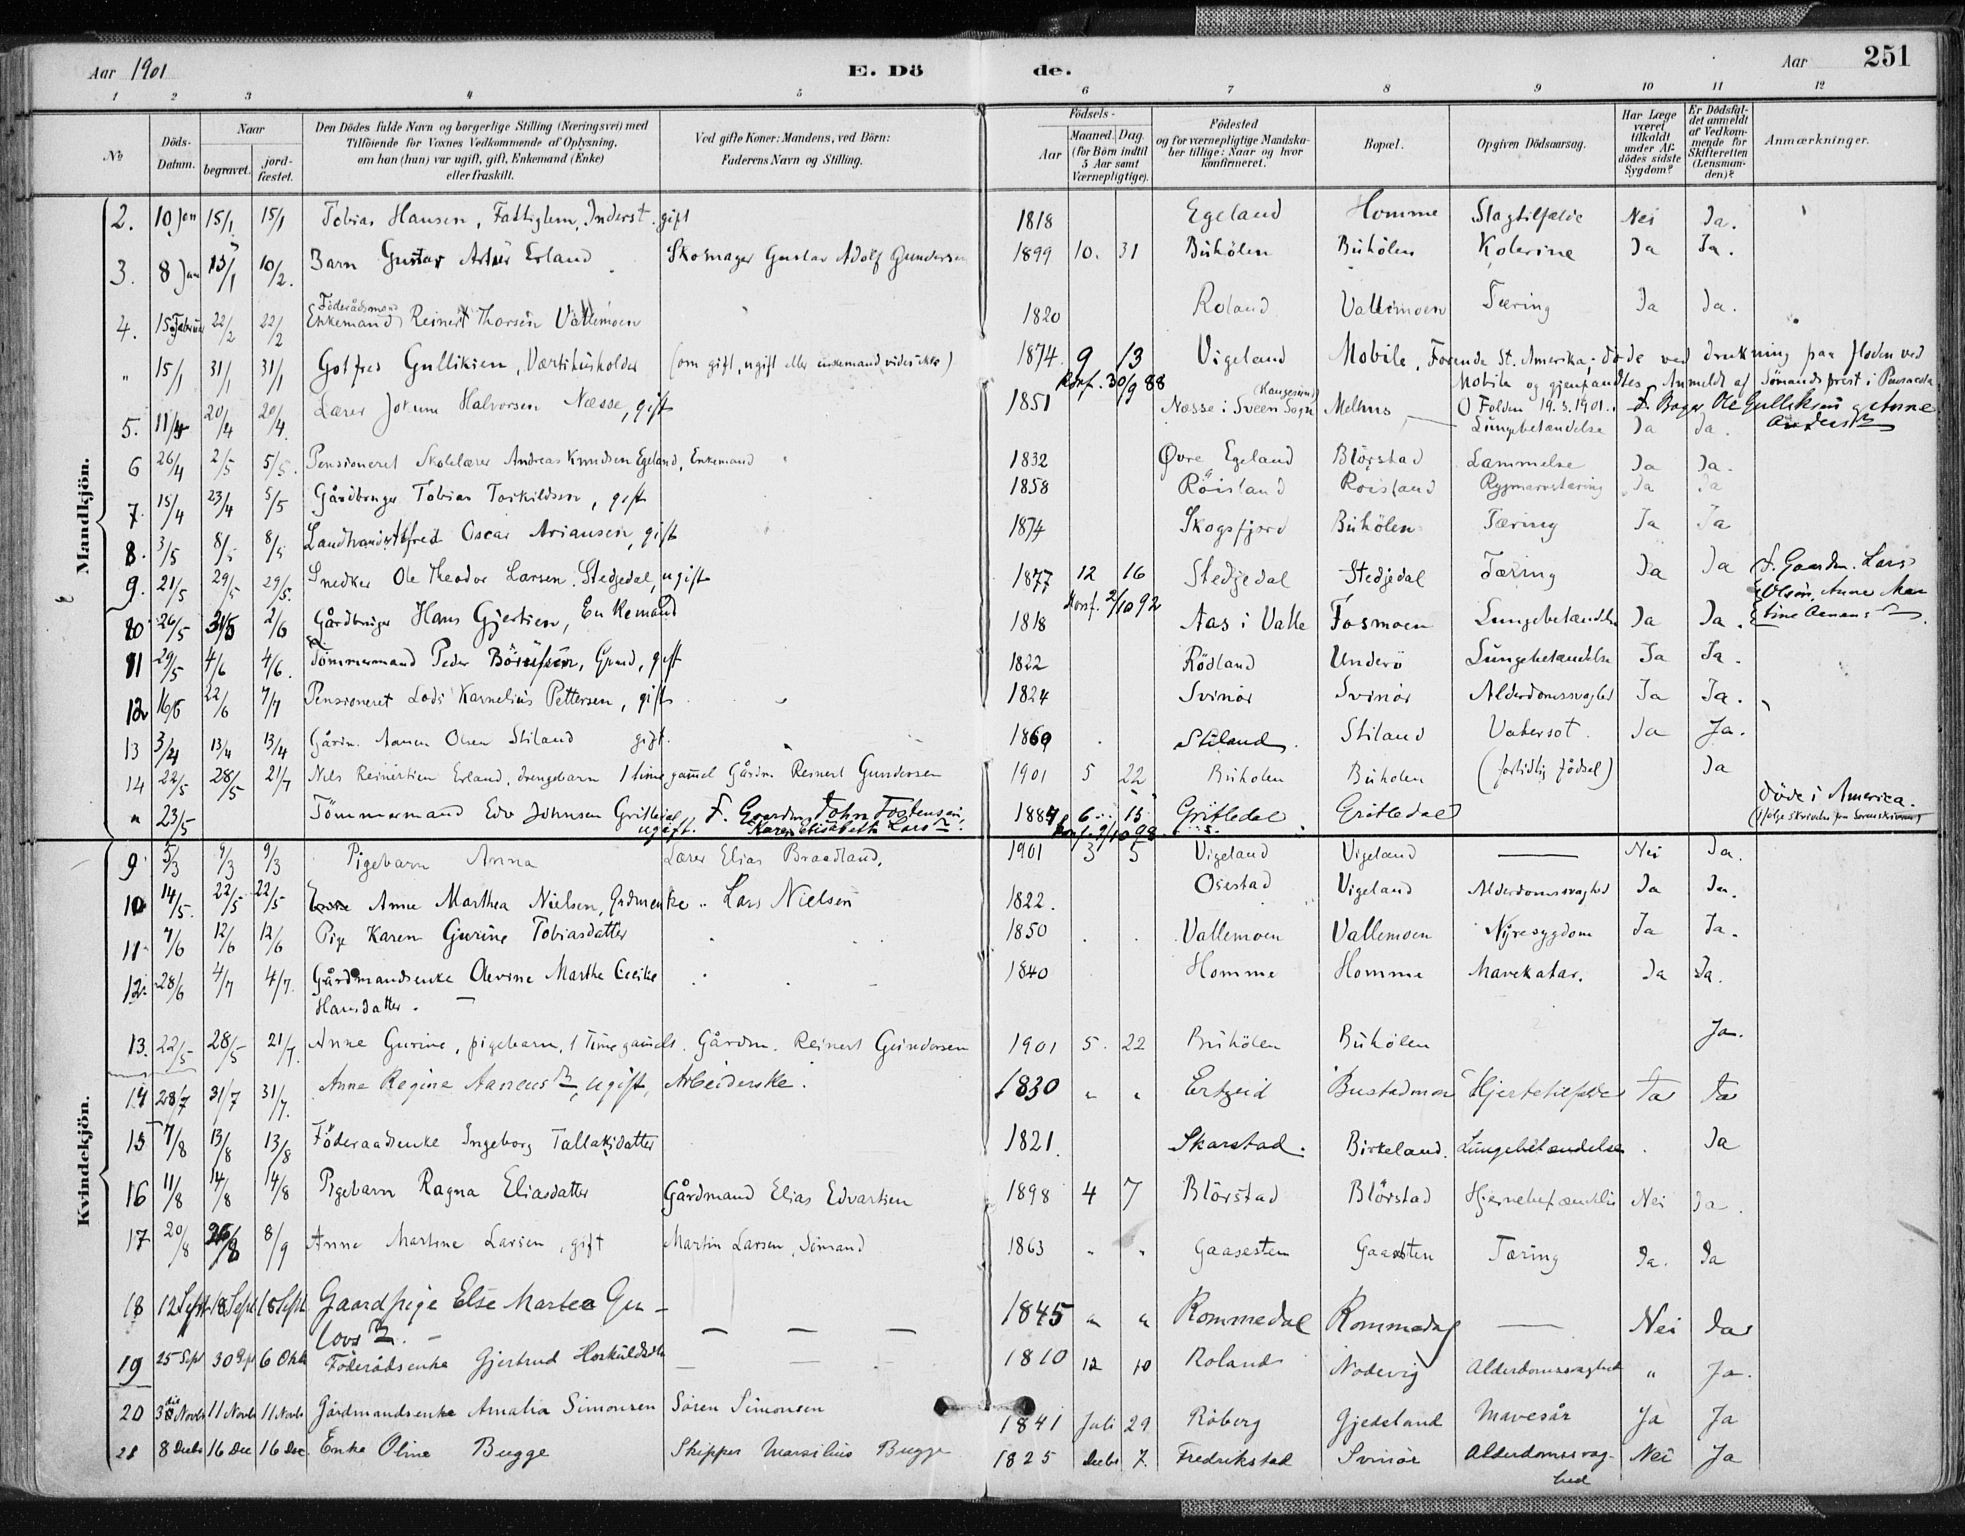 Aar 1901 E. Dö de. Aar 251
1 2 3 4 5 6 7 8 9 10 11 12
№ Döds-Datum. Naar begravet. jordfæstet. Den Dödes fulde Navn og borgerlige Stilling (Næringsvei) med Tilföiende for Voxnes Vedkommende af Oplysning, om han (hun) var ugift, gift, Enkemand (Enke) eller fraskilt. Ved gifte Koner: Mandens, ved Börn: Faderens Navn og Stilling. Födsels- Aar Maaned. Dag. (for Börn indtil 5 Aar samt Værnepligtige). Födested og for værnepligtige Mandskaber tillige: Naar og hvor konfirmeret. Bopæl. Opgiven Dödsaarsag. Har Læge været tilkaldt under Afdödes sidste Sygdom? Er Dödsfaldet anmeldt af Vedkommende for Skifteretten (Lensmanden)? Anmærkninger.
Mandkjön.
2. 10 Jan 15/1 15/1 Tobias Hansen, Fattiglem, Inderst. gift 1818 Egeland Homme Slagtilfælde Nei Ja.
3. 8 Jan 15/1 10/2. Barn Gustav Artur Erland Skomager Gustav Adolf Gundersen 1899 10. 31 Buhölen Buhölen Kolerine Ja Ja.
Föderådsmand
4. 15 Februar 22/2 22/2 Enkemand Reinert Thorsen Vallemoen 1820 Roland Vallemoen Tæring Ja Ja.
" 15/1 31/1 31/1 Gotfred Gulliksen, Værtshusholder (om gift, ugift eller enkemand vides ikke) 1874 9 13 Vigeland Mobile, Forenede St. Amerika; døde ved drukning paa floden ved
Konf. 30/9 88 Mobile og gjenfandtes Anmeldt af Sömandsprest i Pensacola
5. 11/4 20/4 20/4. Lærer Jokum Halvorsen Næsse, gift 1851 Næsse i Sveen Sogn Melhus O Folden 19.3.1901. F. Bager Ole Gulliksen og Anne
Lungebetændelse Ja Ja. Andersdr
6 26/4 2/5 5/5. Pensioneret Skolelærer Andreas Knudsen Egeland, Enkemand 1832 Øvre Egeland Blörstad Lammelse Ja Ja.
7. 15/4 23/4 5/5 Gårdbruger Tobias Torkildsen, gift 1858 Röisland Roisland Rygmarvstæring Ja Ja
8. 3/5 8/5 8/5 Oscar Ariansen, gift 1874 Skogsfjord Buhölen Tæring Ja Ja
9. 21/5 29/5 29/5. Snedker Ole Theodor Larsen, Stedjedal, ugift 1877 12 16 Stedjedal Stedjedal Tæring Ja Ja F. Gaardm. Lars
Konf. 2/10 92 Olsen, Anne Mar
10 26/5 31/5 2/6 Gårdbruger Hans Gjertsen, Enkemand 1818 Aas i Valle Fosmoen Lungebetændelse Ja Ja. tine
11 29/5 4/6 4/6. Tömmermand Peder Grund, gift 1822 Rödland Underö Lungebetændelse Ja Ja.
12 16/5 22/6 7/7 Pensioneret Lods Karnelius Pettersen, gift 1824 Svinör Svinör Alderdomssvaghed Ja Ja.
13 3/4 13/4 13/4 Gårdm. Aanen Olsen Stiland gift. 1869 Stiland. Stiland Vatersot. Ja Ja.
14 22/5 28/5 21/7 Nils Reinertsen Erland, drengebarn 1 time gammel Gårdm. Reinert Gundersen 1901 5 22 Buholen Buholen (fortidlig födsel) Ja
" 23/5 Tömmermand Edv Johnsen Gritledal ugift. F. Gaardm John Tostensen, Karen Elisabeth Larsdr. 1884 6 15 Gritledal Gritledal döde i America.
Konf. 2/10 98
Kvindekjön.
9. 5/3 9/3 9/3 Pigebarn Anna Lærer Elias Braadland. 1901 3 5 Vigeland Vigeland — Nei Ja.
10 14/5. 22/5 22/5 Enke Anne Marthea Nielsen, Grdmenke " Lars Nielsen 1822. Osestad Vigeland Alderdomssvaghed Ja Ja.
11. 7/6 12/6 12/6 Pige Karen Gurine Tobiasdatter 1850 Vallemoen Vallemoen Nyresygdom Ja Ja.
12. 28/6 4/7 4/7. Gårdmandsenke Olevine Marthe Cecilie 1840 Homme Homme Mavekatar. Ja Ja.
Hansdatter. —
13. 22/5 28/5 21/7. Anne Gurine, pigebarn, 1 Time gammelt. Gårdm. Reinert Gundersen 1901 5. 22 Buhölen Buhölen Ja.
14 28/7 31/7 31/7. Anne Regine Aanensdr, ugift, Arbeiderske. 1830 " " Ertzeid Bustadmoen Hjertetilfælde Ja Ja
15 7/8 13/8 13/8 Föderaadsenke Ingeborg Tallaksdatter 1821. Skarstad. Birkeland. Lungebetændelse. Ja
16 11/8 14/8 14/8 Pigebarn Ragna Eliasdatter Gårdmand Elias Edvartsen 1898 4 7 Blörstad Blörstad Hjernebetændelse Nei Ja.
17 20/8 26/8 8/9 Anne Martine Larsen, gift Martin Larsen, Sömand 1863 " " Gaasesten Gaasesten Tæring Ja. Ja
18 12 Sept 18 Sept 18 Sept Gaardpige Else Martea Gu-
lovsdr. — — — — 1845 " " Rommedal Rommedal — Nei Ja
19 25 Sept 30 Sept 6 Okt Föderådsenke Gjertrud Hoskuldsdtr — — 1810 12 10 Roland Nodevig Alderdomssvaghed " Ja.
20 3die Novbr 11 Novbr 11 Novbr Gårdmandsenke Amalia Simonsen Sören Simonsen 1841 Juli 29 Röberg Gjedeland Mavesår Ja Ja
21 8 Decbr 16 Dec 16 Dec Enke Oline Bugge Skipper Marsilius Bugge 1825 Decbr 7. Fredrikstad Svinör Alderdomssvag-
hed Nei Ja